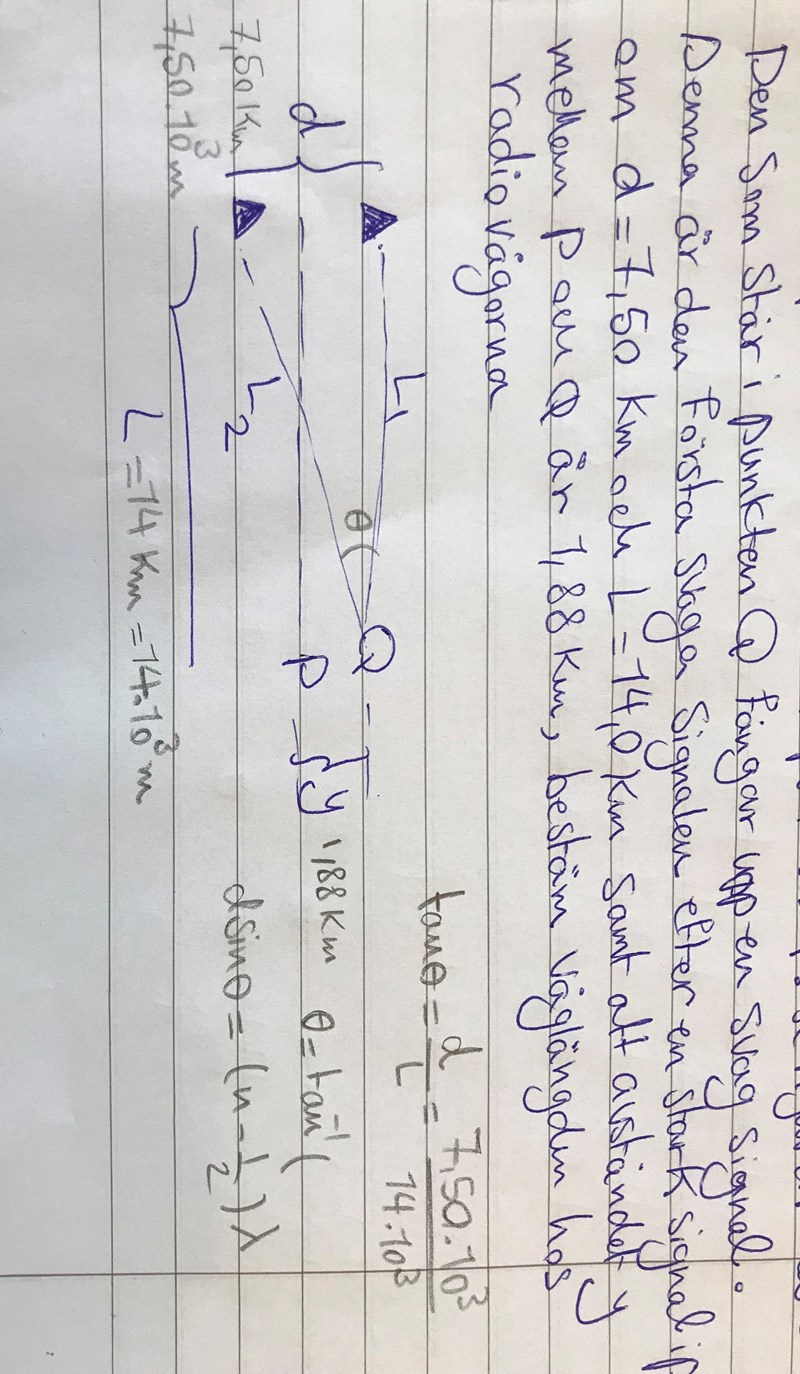 Den som står i punkten Q fångar upp en svag signal.
Denna är den första svaga signalen efter en stark signal i P
om d = 7,50 km och L = 14,0 km samt att avståndet y
mellan P och Q är 1,88 km, bestäm våglängden hos
radiovågorna
tanθ = d/L = 7,50·10³/14·10³
d L₁ θ Q
P y 1,88 km θ = tan⁻¹(
7,50 km L₂ dsinθ = (n - 1/2)λ
7,50·10³ m
L = 14 km = 14·10³ m